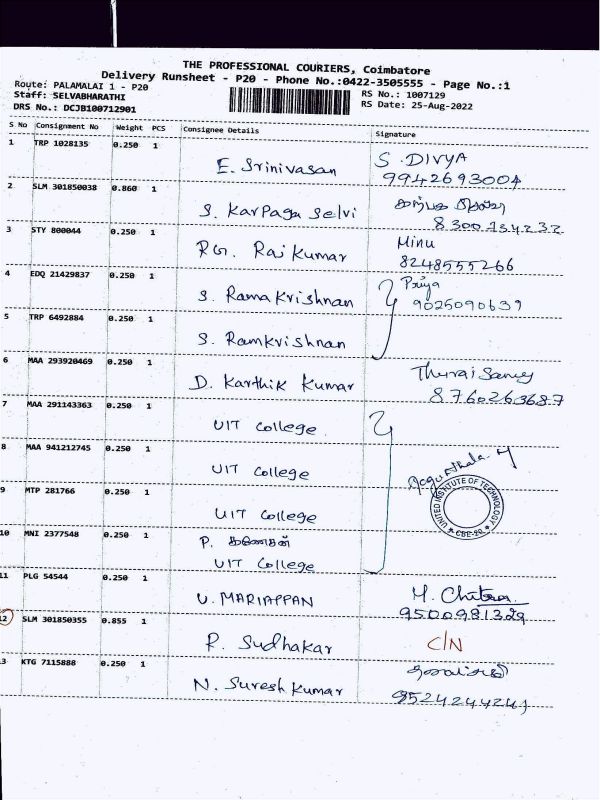 THE PROFESSIONAL COURIERS, Coimbatore
Delivery Runsheet - P20 - Phone No.:0422-3505555 - Page No.:1
Route: PALAMALAI 1 - P20
RS No.: 1007129
Staff: SELVABHARATHI
RS Date: 25-Aug-2022
DRS No.: DCJB100712901
S No Consignment No Weight PCS Consignee Details Signature
1 TRP 1028135 0.250 1 E. Srinivasan S. DIVYA
9942693004
2 SLM 301850038 0.860 1 S. Karpaga Selvi
8300734232
3 STY 800044 0.250 1 RG. Raj Kumar Minu
8248555266
4 EDQ 21429837 0.250 1 S. Ramakrishnan Priya
9025090639
5 TRP 6492884 0.250 1 S. Ramkrishnan
6 MAA 293920469 0.250 1 D. Karthik Kumar Thuraisamy
8760263687
7 MAA 291143363 0.250 1 UIT College
8 MAA 941212745 0.250 1 UIT College
9 MTP 281766 0.250 1 UIT College
UNITED INSTITUTE OF TECHNOLOGY
CBE-20
10 MNI 2377548 0.250 1 P. கணேசன்
UIT College
11 PLG 54544 0.250 1 U. MARIAPPAN M. Chitra
9500981329
12 SLM 301850355 0.855 1 R. Sudhakar C/N
13 KTG 7115888 0.250 1 N. Suresh Kumar
9524244241